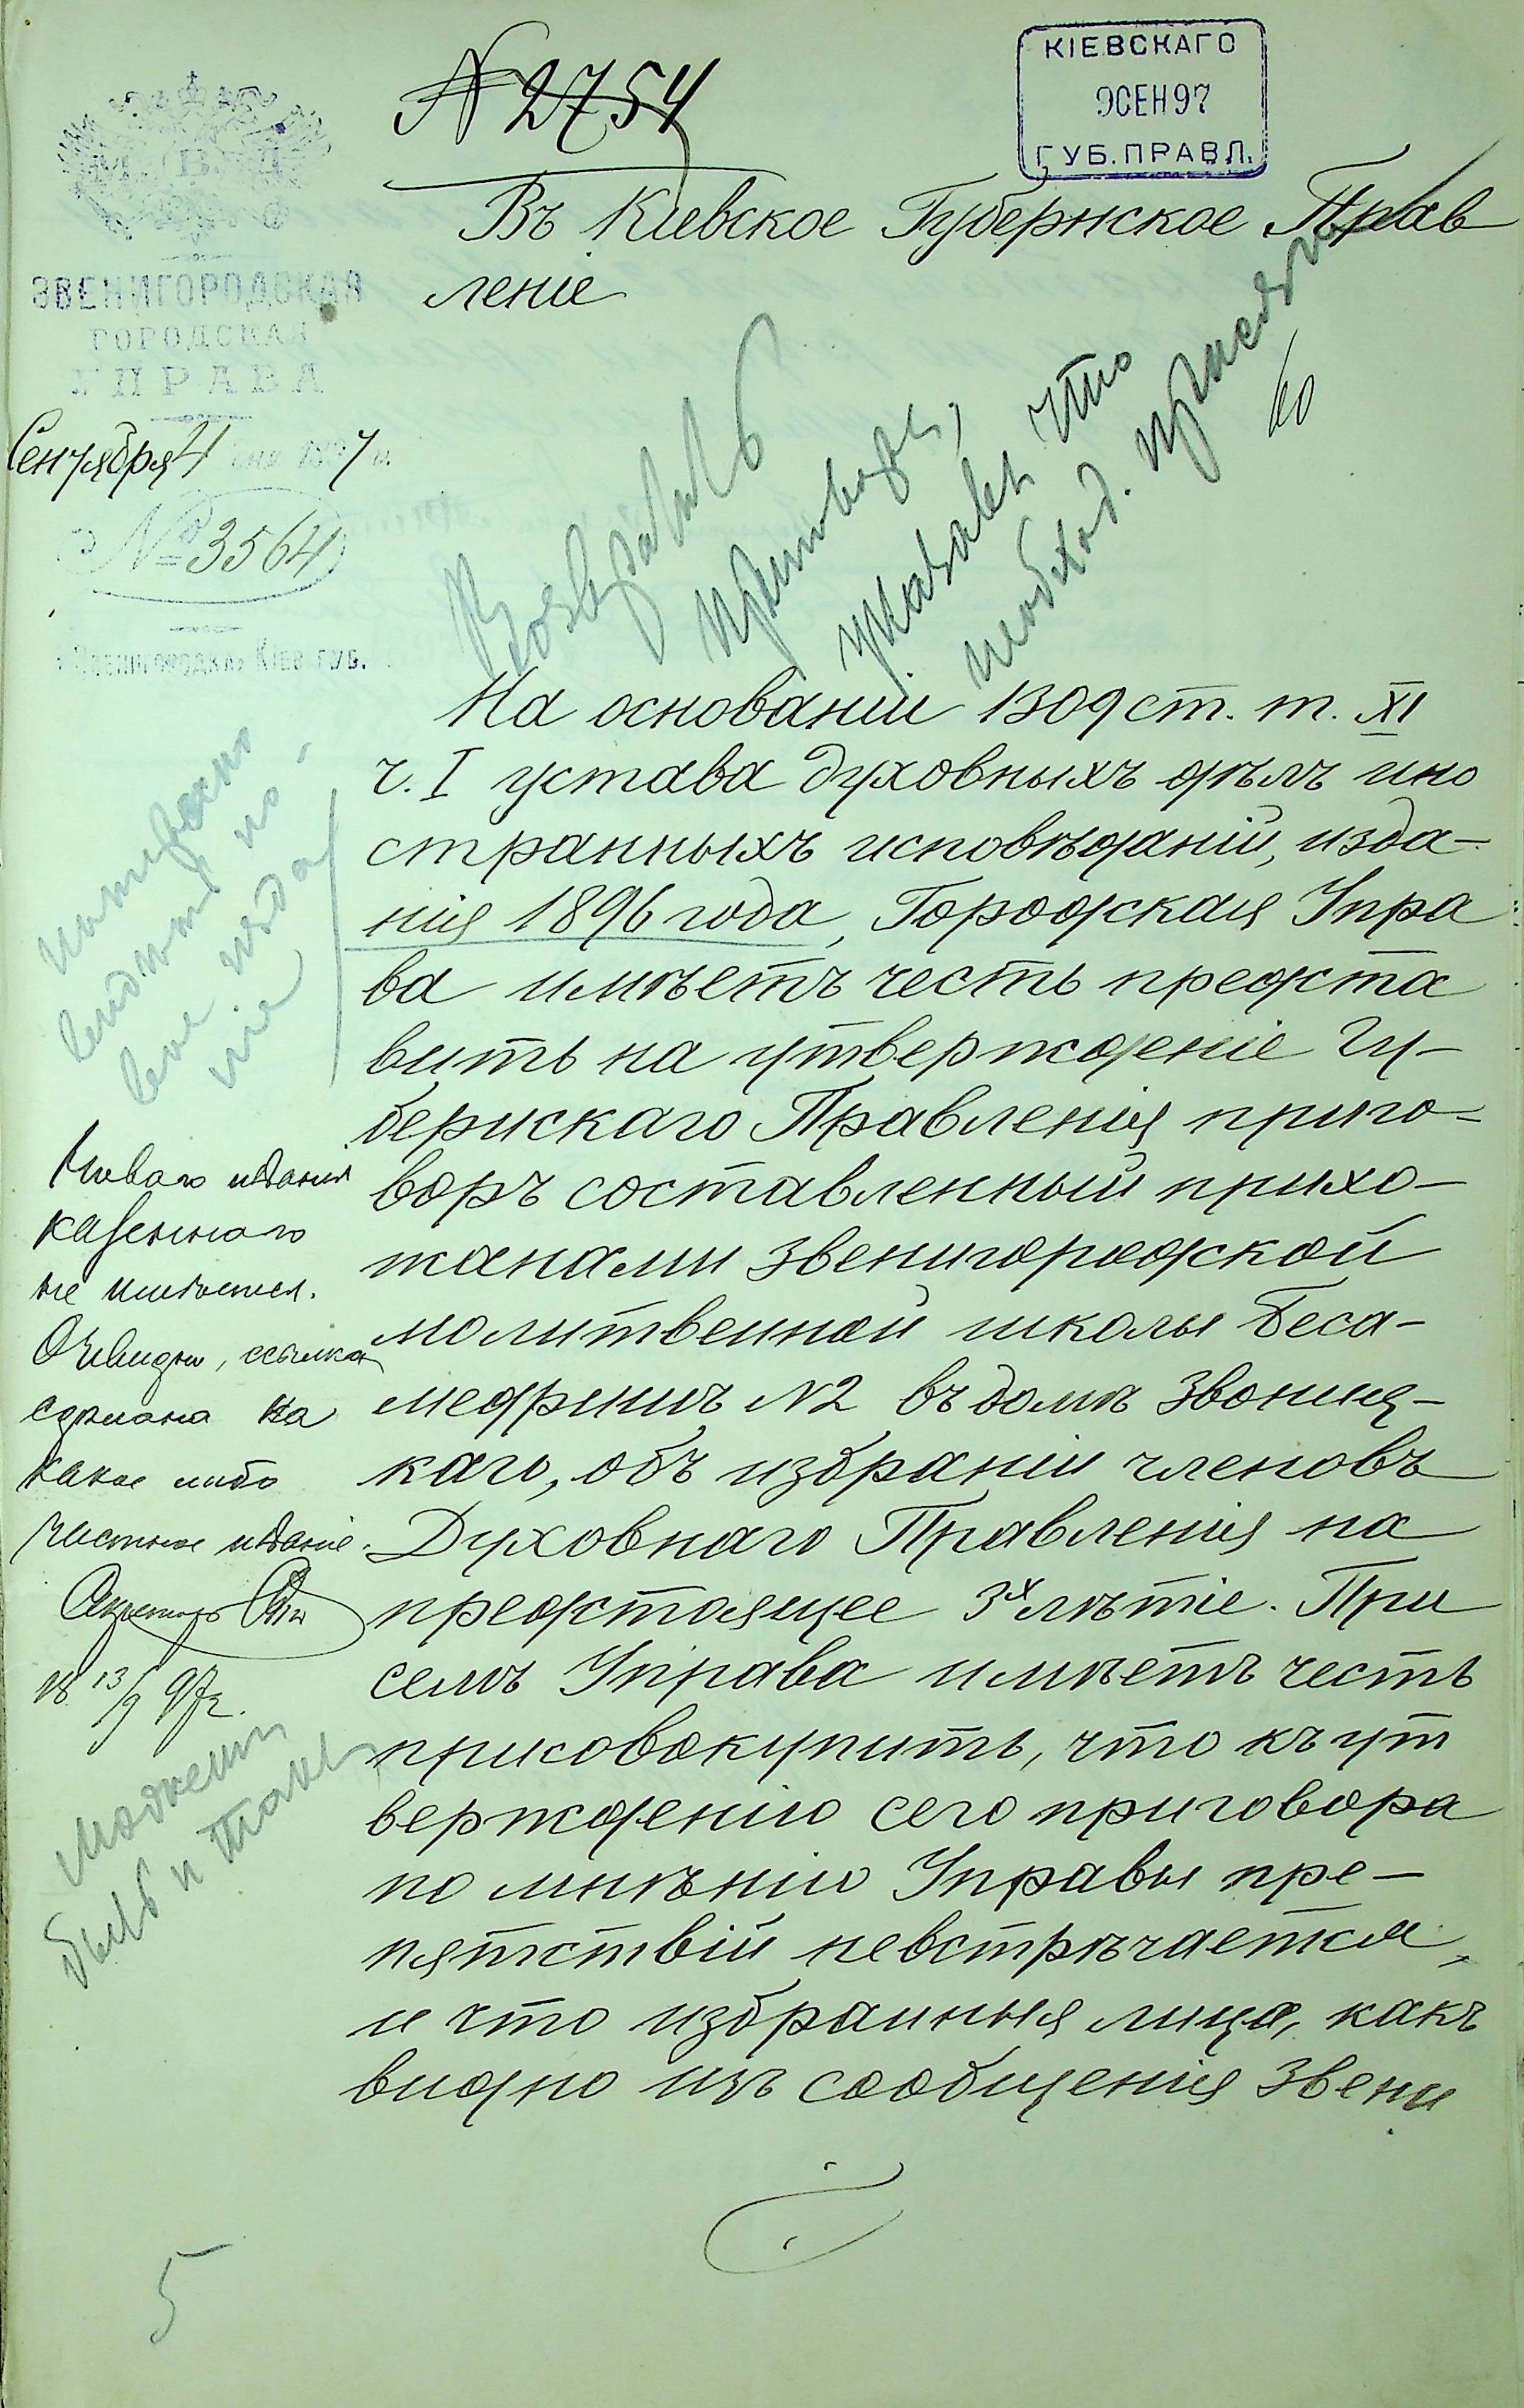 № 2754
КІЕВСКАГО
9 СЕН 97
ГУБ. ПРАВЛ.
М. В. Д.
ЗВЕНИГОРОДСКАЯ
ГОРОДСКАЯ
УПРАВА
Сентября 4 дня 1897 г.
№ 3564
г. Звенигородка, Кіев. губ.
Въ Кіевское Губернское Прав
леніе
Возвратить
приговоръ,
указавъ что
необход. присяга
На основаніи 1309 ст. т. XI
ч. I устава духовныхъ дѣлъ ино
странныхъ исповѣданій, изда-
нія 1896 года, Городская Упра
ва имѣетъ честь предста
вить на утвержденіе Гу-
бернскаго Правленія приго-
воръ составленный прихо-
жанами Звенигородской
молитвенной школы Беса-
медришъ №2 въ домѣ Звониц-
каго, объ избраніи членовъ
Духовнаго Правленія на
предстоящее 3х лѣтіе. При
семъ Управа имѣетъ честь
присовокупить, что къ ут
вержденію сего приговора
по мнѣнію Управы пре-
пятствій невстрѣчается,
и что избранныя лица, какъ
видно изъ сообщенія Звени
цитировано
вѣдь по
изда
ніе
Новаго изданія
казеннаго
не имѣется.
Очевидно, ссылка
сдѣлана на
какое либо
частное изданіе.
Секретарь
13/9 97 г.
Можетъ
быть и такъ
5